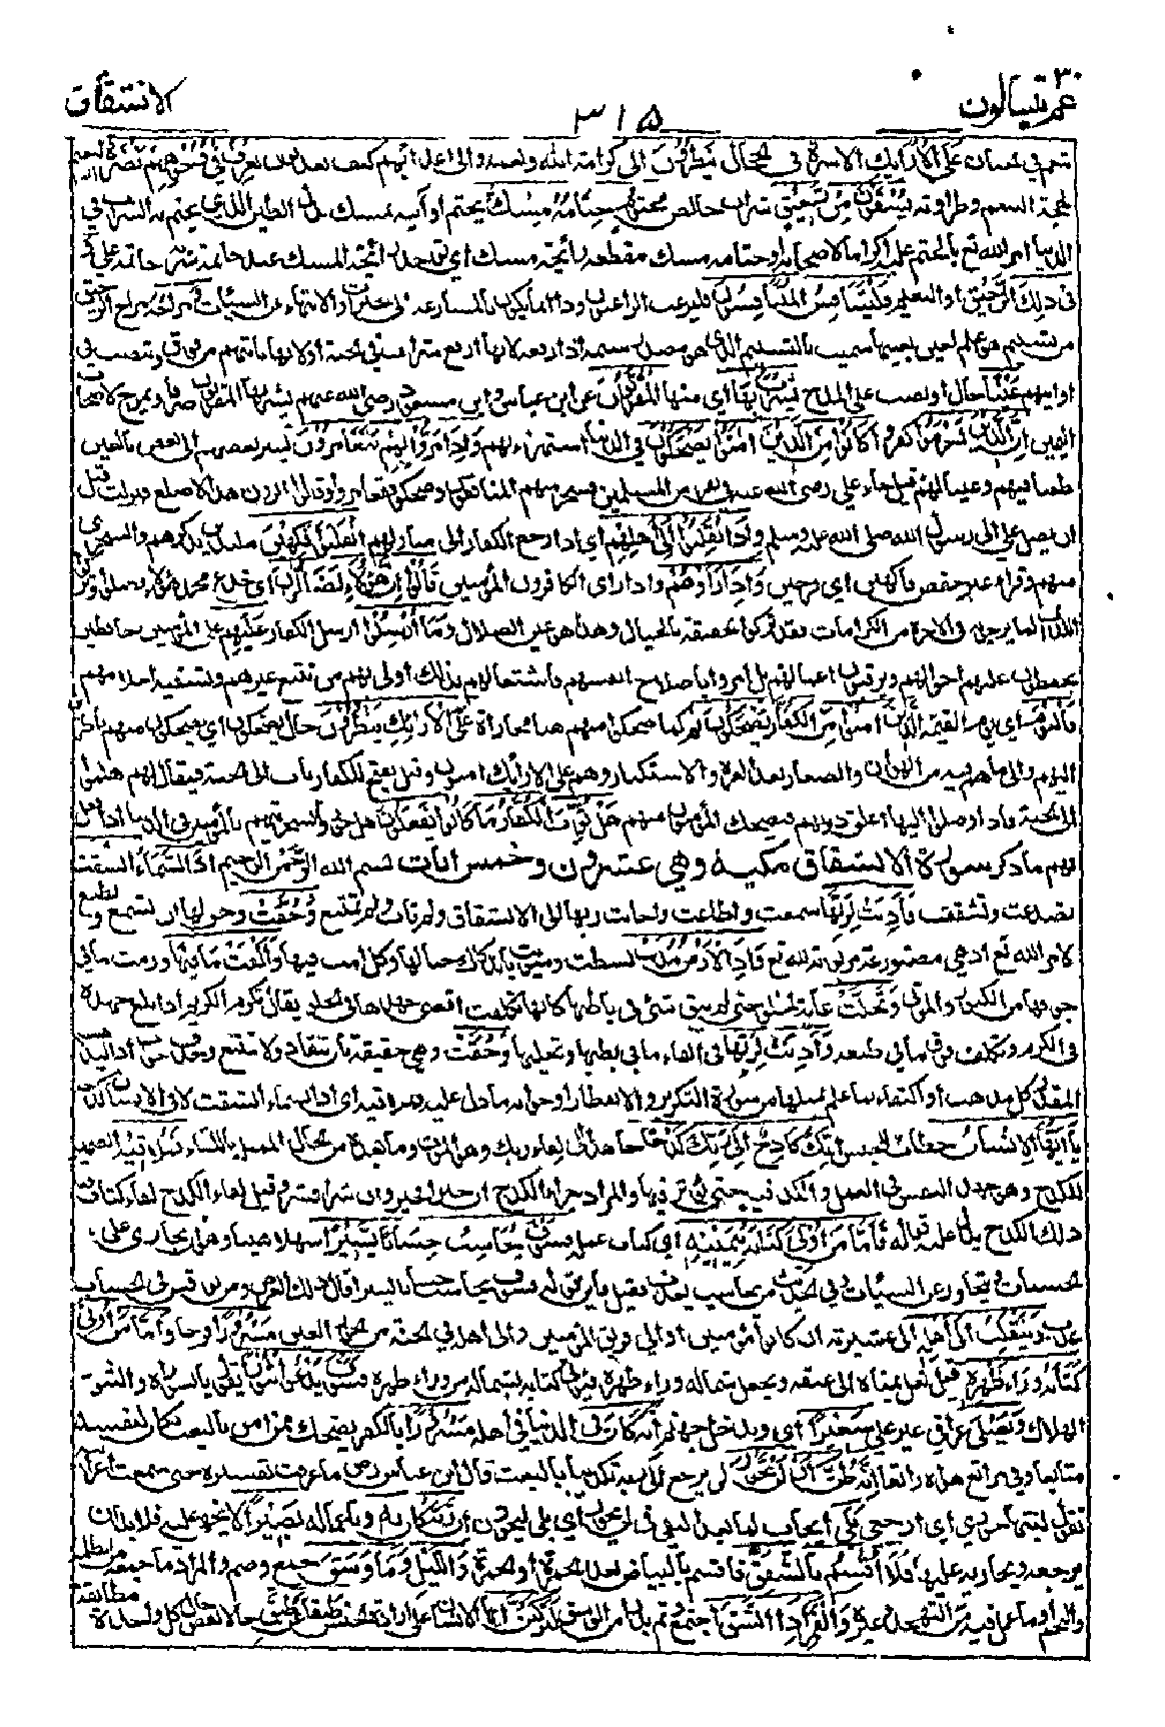 ٣٠
عم يتسألون
٣١٥
الانشقاق
تنعم في الجنان عَلَى الْأَرَائِكِ الاسرة فى الحجال يَنْظُرُونَ الى كرامة الله ونعمه والى اعدائهم كيف يعذبون تَعْرِفُ فِي وُجُوهِهِمْ نَضْرَةَ النَّعِيمِ
بهجة التنعم وطراوته يُسْقَوْنَ مِنْ رَحِيقٍ شراب خالص مَخْتُومٍ خِتَامُهُ مِسْكٌ يختم اوانيه بمسك بدل الطين الذى يختم به الشراب فى
الدنيا امر الله تع بالختم عليه اكراما لاصحابه او ختامه مسك مقطعه رائحة مسك اى توجد رائحة المسك عند خاتمة شربه خاتمه على
فى ذلِكَ الرحيق او النعيم فَلْيَتَنَافَسِ الْمُتَنَافِسُونَ فليرغب الراغبون وذا انما يكون بالمسارعة الى الخيرات والانتهاء عن السيئات وَمِزَاجُهُ ومزاج الرحيق
مِنْ تَسْنِيمٍ هو علم لعين بعينها سميت بالتسنيم الذى هو مصدر سنمه اذا رفعه لانها ارفع شراب فى الجنة او لانها تاتيهم من فوق وتنصب فى
اوانيهم عَيْنًا حال او نصب على المدح يَشْرَبُ بِهَا اى منها الْمُقَرَّبُونَ عن ابن عباس وابن مسعود رضى الله عنهم يشربها المقربون صرفا ويمزج لاصحاب
اليمين إِنَّ الَّذِينَ أَجْرَمُوا كفروا كَانُوا مِنَ الَّذِينَ آمَنُوا يَضْحَكُونَ فى الدنيا استهزاء بهم وَإِذَا مَرُّوا بِهِمْ يَتَغَامَزُونَ يشير بعضهم الى بعض بالعين
طعنا فيهم وعيبا لهم قيل جاء على رضى الله عنه فى نفر من المسلمين فسخر منهم المنافقون وضحكوا وتغامزوا وقالوا اترون هذا الاصلع فنزلت قبل
ان يصل على الى رسول الله صلى الله عليه وسلم وَإِذَا انْقَلَبُوا إِلَى أَهْلِهِمْ اى اذا رجع الكفار الى منازلهم انْقَلَبُوا فَكِهِينَ متلذذين بذكرهم والسخرية
منهم وقرأ غير حفص فاكهين اى فرحين وَإِذَا رَأَوْهُمْ واذا راى الكافرون المؤمنين قَالُوا إِنَّ هَؤُلَاءِ لَضَالُّونَ اى خدع محمد هؤلاء فضلوا وتركوا
اللذات لما يرجونه فى الاخرة من الكرامات فقد تركوا الحقيقة بالخيال وهذا هو عين الضلال وَمَا أُرْسِلُوا ارسل الكفار عَلَيْهِمْ على المؤمنين حَافِظِينَ
يحفظون عليهم احوالهم ويرقبون اعمالهم بل امروا باصلاح انفسهم فاشتغالهم بذلك اولى لهم من تتبع غيرهم وتسفيه احلامهم
فَالْيَوْمَ اى يوم القيمة الَّذِينَ آمَنُوا مِنَ الْكُفَّارِ يَضْحَكُونَ كما ضحكوا منهم هنا مجازاة عَلَى الْأَرَائِكِ يَنْظُرُونَ حال يضحكون اى يضحكون منهم ناظرين
اليهم والى ما هم فيه من الهوان والصغار بعد العزة والاستكبار وهم على الارائك امنون وقيل يفتح للكفار باب الى الجنة فيقال لهم هلموا
الى الجنة فاذا وصلوا اليها اغلق دونهم فيضحك المؤمنون منهم هَلْ ثُوِّبَ الْكُفَّارُ مَا كَانُوا يَفْعَلُونَ هل جوزوا بسخريتهم بالمؤمنين فى الدنيا اذا فعل
بهم ما ذكر سورة الانشقاق مكية وهي عشرون وخمس ايات بسم الله الرحمن الرحيم إِذَا السَّمَاءُ انْشَقَّتْ
تصدعت وتشققت وَأَذِنَتْ لِرَبِّهَا سمعت واطاعت واجابت ربها الى الانشقاق ولم تاب ولم تمتنع وَحُقَّتْ وحق لها ان تسمع وتطيع
لامر الله تع اذ هى مصنوعة مربوبة لله تع وَإِذَا الْأَرْضُ مُدَّتْ بسطت وسويت باندكاك جبالها وكل امت فيها وَأَلْقَتْ مَا فِيهَا ورمت ما فى
جوفها من الكنوز والموتى وَتَخَلَّتْ غاية الخلو حتى لم يبق شئ فى باطنها كانها تكلفت اقصى جهدها فى الخلو يقال تكرم الكريم اذا بلغ جهده
فى الكرم وتكلف فوق ما فى طبعه وَأَذِنَتْ لِرَبِّهَا فى القاء ما فى بطنها وتخليها وَحُقَّتْ وهى حقيقة بان تنقاد ولا تمتنع وحذف جواب اذا ليذهب
المقدر كل مذهب او اكتفاء بما علم بمثلها من سورة التكوير والانفطار او جوابه ما دل عليه فملاقيه اى اذا السماء انشقت لاقى الانسان كدحه
يَا أَيُّهَا الْإِنْسَانُ خطاب للجنس إِنَّكَ كَادِحٌ إِلَى رَبِّكَ كَدْحًا جاهد الى لقاء ربك وهو الموت وما بعده من الحال الممثل باللقاء فَمُلَاقِيهِ الضمير
للكدح وهو جهد النفس فى العمل والكد فيه حتى يؤثر فيها والمراد جزاء الكدح ان خيرا فخير وان شرا فشر وقيل لقاء الكدح لقاء كتاب فيه
ذلك الكدح يدل عليه قوله فَأَمَّا مَنْ أُوتِيَ كِتَابَهُ بِيَمِينِهِ اى كتاب عمله فَسَوْفَ يُحَاسَبُ حِسَابًا يَسِيرًا سهلا هينا وهو ان يجازى على
الحسنات ويتجاوز عن السيئات وفى الحديث من يحاسب يعذب فقيل فاين قوله فسوف يحاسب حسابا يسيرا قال ذلك العرض ومن نوقش فى الحساب
عذب وَيَنْقَلِبُ إِلَى أَهْلِهِ الى عشيرته ان كانوا مؤمنين او الى فريق المؤمنين والى اهله فى الجنة من الحور العين مَسْرُورًا فرحا وَأَمَّا مَنْ أُوتِيَ
كِتَابَهُ وَرَاءَ ظَهْرِهِ قيل تغل يمناه الى عنقه ويجعل شماله وراء ظهره فيؤتى كتابه بشماله من وراء ظهره فَسَوْفَ يَدْعُو ثُبُورًا يقول يا ثبوراه والثبور
الهلاك وَيَصْلَى عراقى غير على سَعِيرًا اى ويدخل جهنم إِنَّهُ كَانَ فِي الدنيا فِي أَهْلِهِ مَسْرُورًا بالكفر يضحك ممن امن بالبعث كان لنفسه
متابعا وفى مراتع هواه راتعا إِنَّهُ ظَنَّ أَنْ لَنْ يَحُورَ لن يرجع الى ربه تكذيبا بالبعث قال ابن عباس رض ما عرفت تفسيره حتى سمعت اعرابية
تقول لبنتها حورى اى ارجعى بَلَى ايجاب لما بعد النفى فى لن يحور اى بلى ليحورن إِنَّ رَبَّهُ كَانَ بِهِ وباعماله بَصِيرًا لا يخفى عليه فلا بد ان
يرجعه ويجازيه عليها فَلَا أُقْسِمُ بِالشَّفَقِ فاقسم بالبياض بعد الحمرة او الحمرة وَاللَّيْلِ وَمَا وَسَقَ جمع وضم والمراد ما جمعه من الظلمة
والنجم او ما عمل فيه من التهجد وغيره وَالْقَمَرِ إِذَا اتَّسَقَ اجتمع وتم بدرا من الوسق لَتَرْكَبُنَّ ايها الانسان على ارادة الجنس طَبَقًا عَنْ طَبَقٍ حالا بعد حال كل واحدة مطابقة